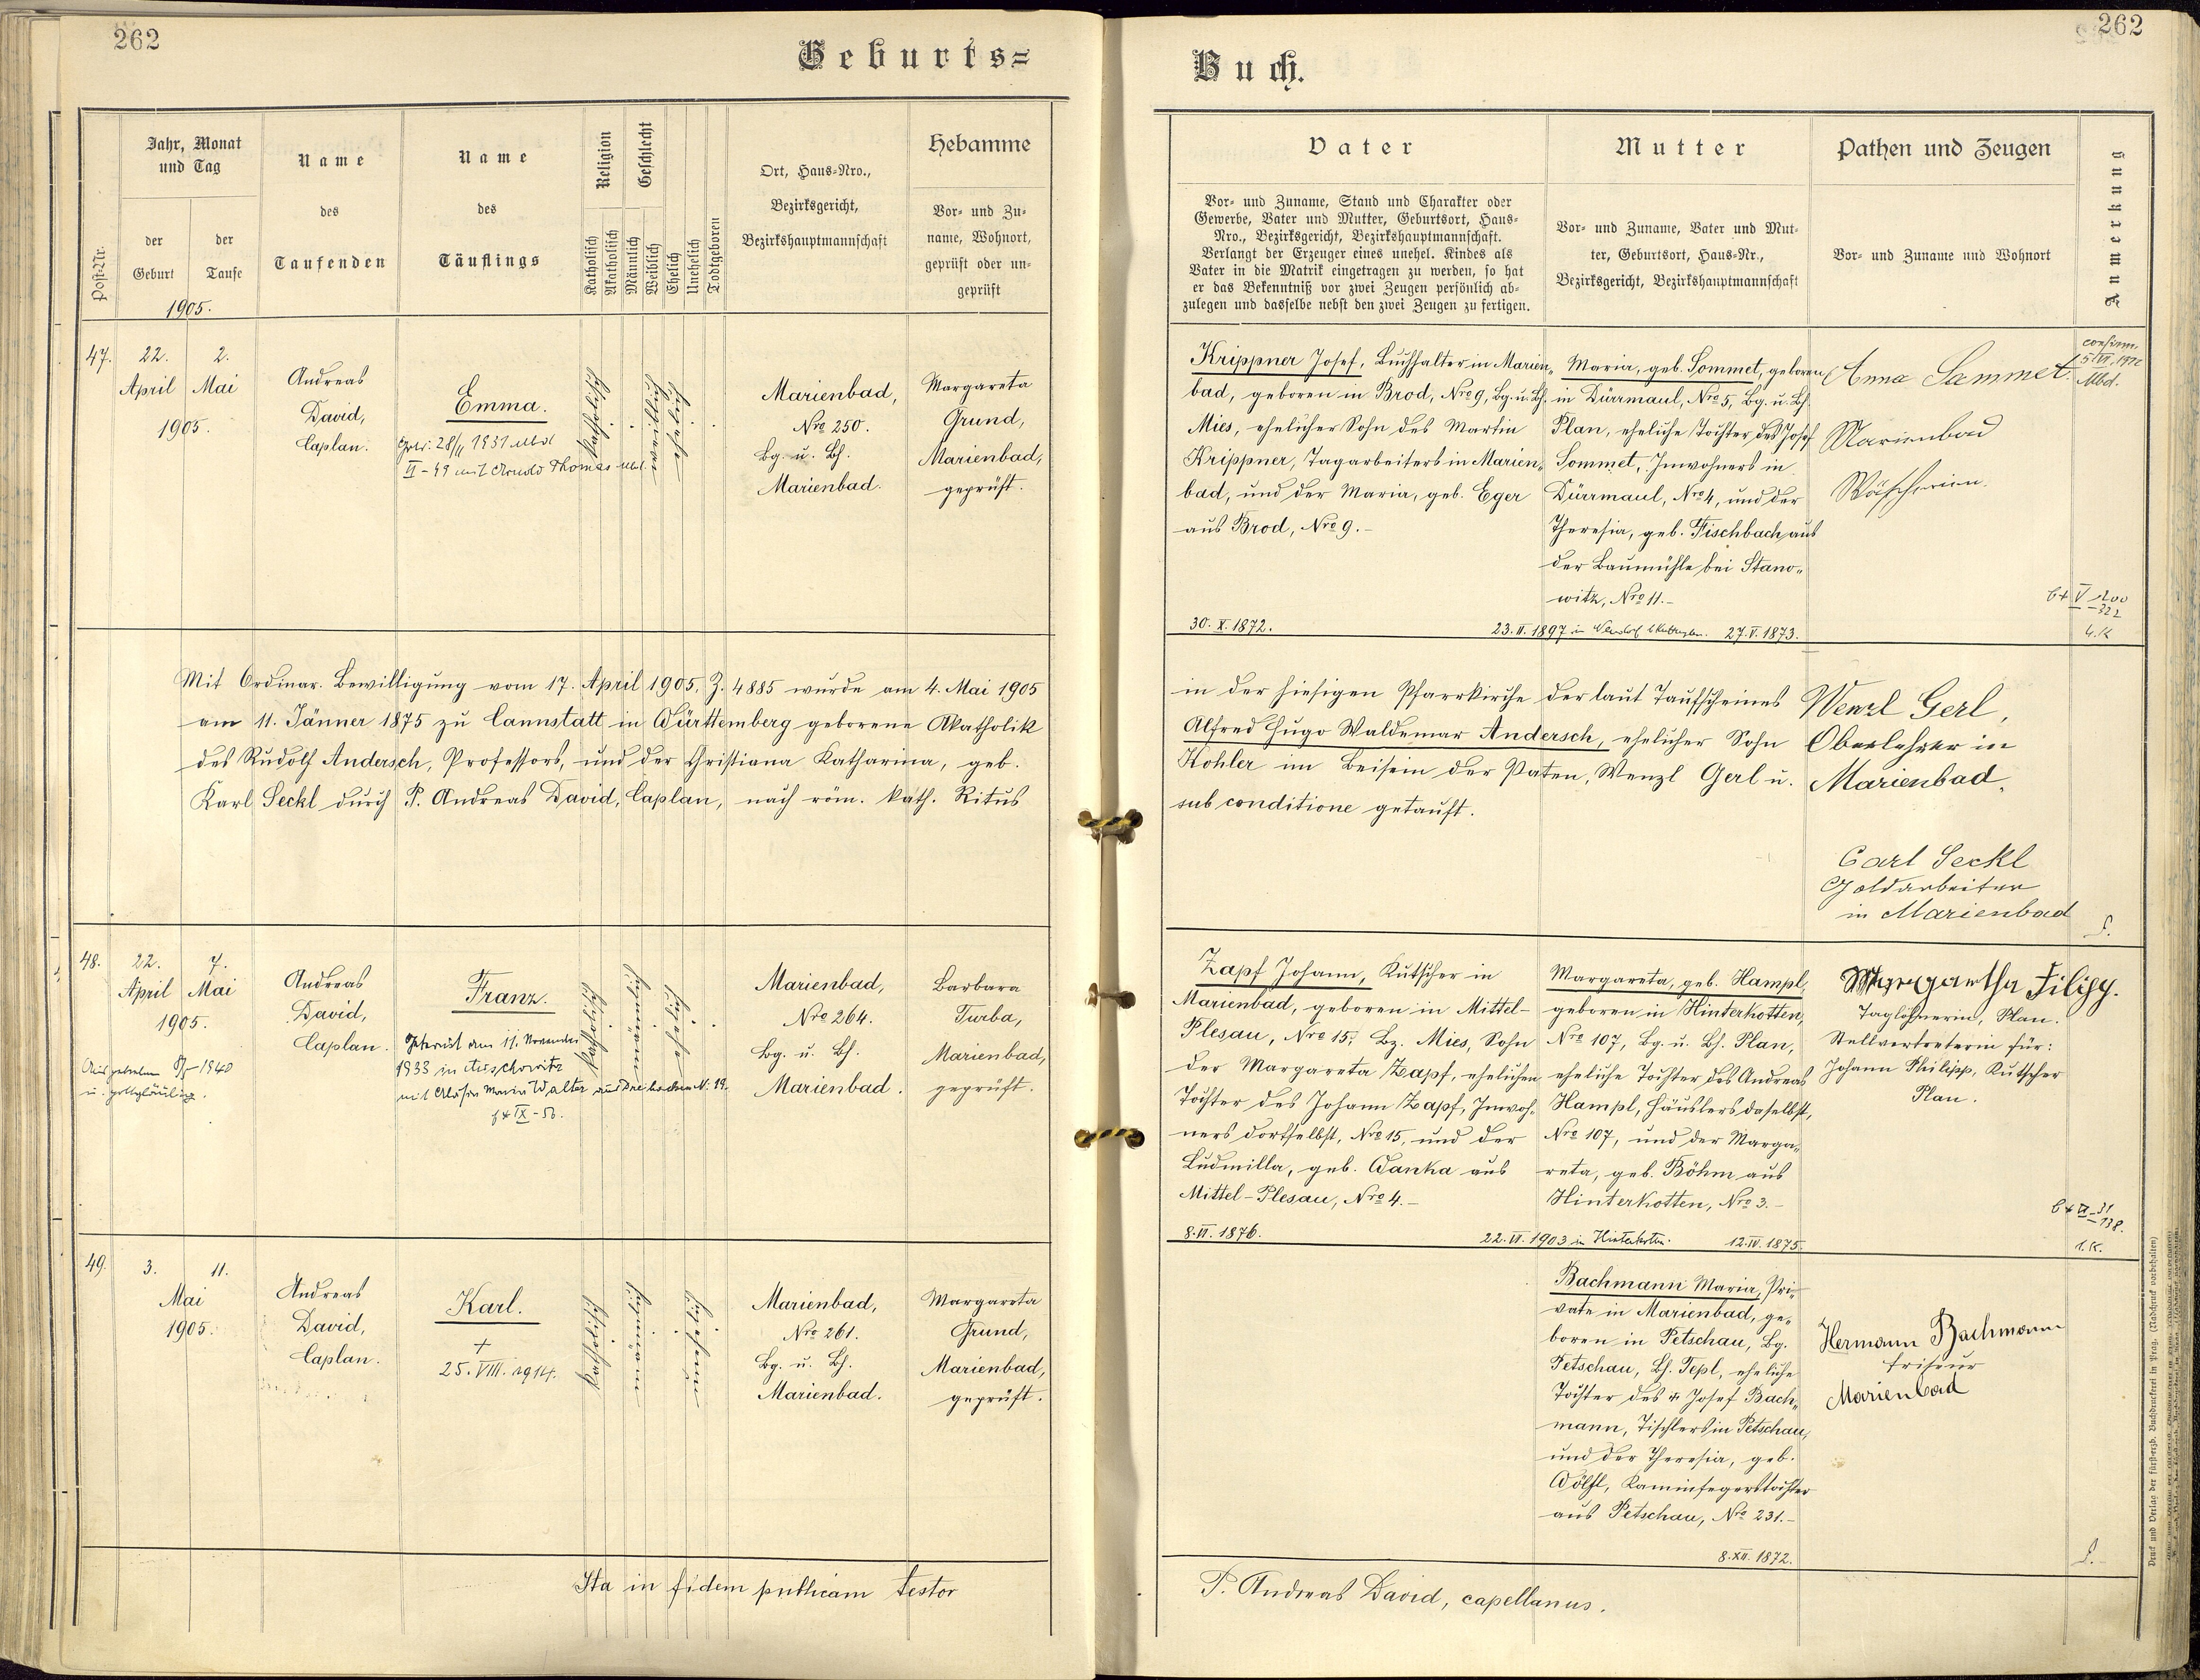 262
Geburts=
Jahr, Monat
und Tag
Name
Name
Religion
Geschlecht
Hebamme
Ort, Haus-Nro.,
Bezirksgericht,
Bezirkshauptmannschaft
des
des
Vor- und Zu-
name, Wohnort,
geprüft oder un-
geprüft
Post-Nr.
der
Geburt
der
Taufe
Taufenden
Täuflings
Katholisch
Akatholisch
Männlich
Weiblich
Ehelich
Unehelich
Todtgeboren
1905.
47.
22.
2.
April
Mai
1905.
Andreas
David,
Caplan.
Emma.
28/II 1931
II-49 mit Thomas
katholisch
ehelich
Marienbad,
Nro 250.
Bg. u. Bh.
Marienbad.
Margareta
Grund,
Marienbad,
geprüft.
Mit Ordinar. Bewilligung vom 17. April 1905, Z. 4885 wurde am 4. Mai 1905
am 11. Jänner 1875 zu Cannstatt in Württemberg geborene Akatholik
des Rudolf Andersch, Professors, und der Christiana Katharina, geb.
Karl Seckl durch P. Andreas David, Caplan, nach röm. kath. Ritus
48.
22.
7.
April
Mai
1905.
Andreas
David,
Caplan.
Ausgetreten 1940
u. gottgläubig.
Franz.
Getraut am 11. November
1933 in Auschowitz
mit Marie Walter aus N. 19.
IX-56.
katholisch
Marienbad,
Nro 264.
Bg. u. Bh.
Marienbad.
Barbara
Turba,
Marienbad,
geprüft.
49.
3.
11.
Mai
1905.
Andreas
David,
Caplan.
Karl.
+
25. VIII. 1914.
katholisch
Marienbad,
Nro 261.
Bg. u. Bh.
Marienbad.
Margareta
Grund,
Marienbad,
geprüft.
Ita in fidem publicam testor
262
Buch.
Vater
Mutter
Pathen und Zeugen
Anmerkung
Vor- und Zuname, Stand und Charakter oder
Gewerbe, Vater und Mutter, Geburtsort, Haus-
Nro., Bezirksgericht, Bezirkshauptmannschaft.
Verlangt der Erzeuger eines unehel. Kindes als
Vater in die Matrik eingetragen zu werden, so hat
er das Bekenntniß vor zwei Zeugen persönlich ab-
zulegen und dasselbe nebst den zwei Zeugen zu fertigen.
Vor- und Zuname, Vater und Mut-
ter, Geburtsort, Haus-Nr.,
Bezirksgericht, Bezirkshauptmannschaft
Vor- und Zuname und Wohnort
Krippner Josef, Buchhalter in Marien-
bad, geboren in Brod, Nro 9, Bg. u. Bh.
Mies, ehelicher Sohn des Martin
Krippner, Tagarbeiters in Marien-
bad, und der Maria, geb. Eger
aus Brod, Nro 9.-
30. X. 1872.
Maria, geb. Sommet, geboren
in Dürrmaul, Nro 5, Bg. u. Bh.
Plan, eheliche Tochter des Josef
Sommet, Inwohners in
Dürrmaul, Nro 4, und der
Theresia, geb. Fischbach aus
der Baumühle bei Stano-
witz, Nro 11.-
23. II. 1897 in
27. V. 1873.
Anna Sammet.
Marienbad
Wäscherin.
confirm.
Mbd.
in der hiesigen Pfarrkirche der laut Taufscheines
Alfred Hugo Waldemar Andersch, ehelicher Sohn
Kohler im Beisein der Paten, Wenzl Gerl u.
sub conditione getauft.
Wenzl Gerl,
Oberlehrer in
Marienbad.
Carl Seckl
Goldarbeiter
in Marienbad
Zapf Johann, Kutscher in
Marienbad, geboren in Mittel-
Plesau, Nro 15, Bz. Mies, Sohn
der Margareta Zapf, ehelichen
Tochter des Johann Zapf, Inwoh-
ners dortselbst, Nro 15, und der
Ludmilla, geb. Wanka aus
Mittel-Plesau, Nro 4.-
8. VI. 1876.
Margareta, geb. Hampl,
geboren in Hinterkotten,
Nro 107, Bg. u. Bh. Plan,
eheliche Tochter des Andreas
Hampl, Häuslers daselbst,
Nro 107, und der Marga-
reta, geb. Böhm aus
Hinterkotten, Nro 3.-
22. VI. 1903 in Hinterkotten.
12. IV. 1875.
Margaretha Filipp.
Taglöhnerin, Plan.
Stellvertreterin für:
Johann Philipp, Kutscher
Plan.
1. K.
Bachmann Maria, Pri-
vate in Marienbad, ge-
boren in Petschau, Bg.
Petschau, Bh. Tepl, eheliche
Tochter des + Josef Bach-
mann, Tischlers in Petschau,
und der Theresia, geb.
Wölfl, Kaminfegerstochter
aus Petschau, Nro 231.-
8. XII. 1872.
Hermann Bachmann
Friseur
Marienbad
P. Andreas David, capellanus.
Druck und Verlag der fürst-erzb. Buchdruckerei in Prag. (Nachdruck vorbehalten)